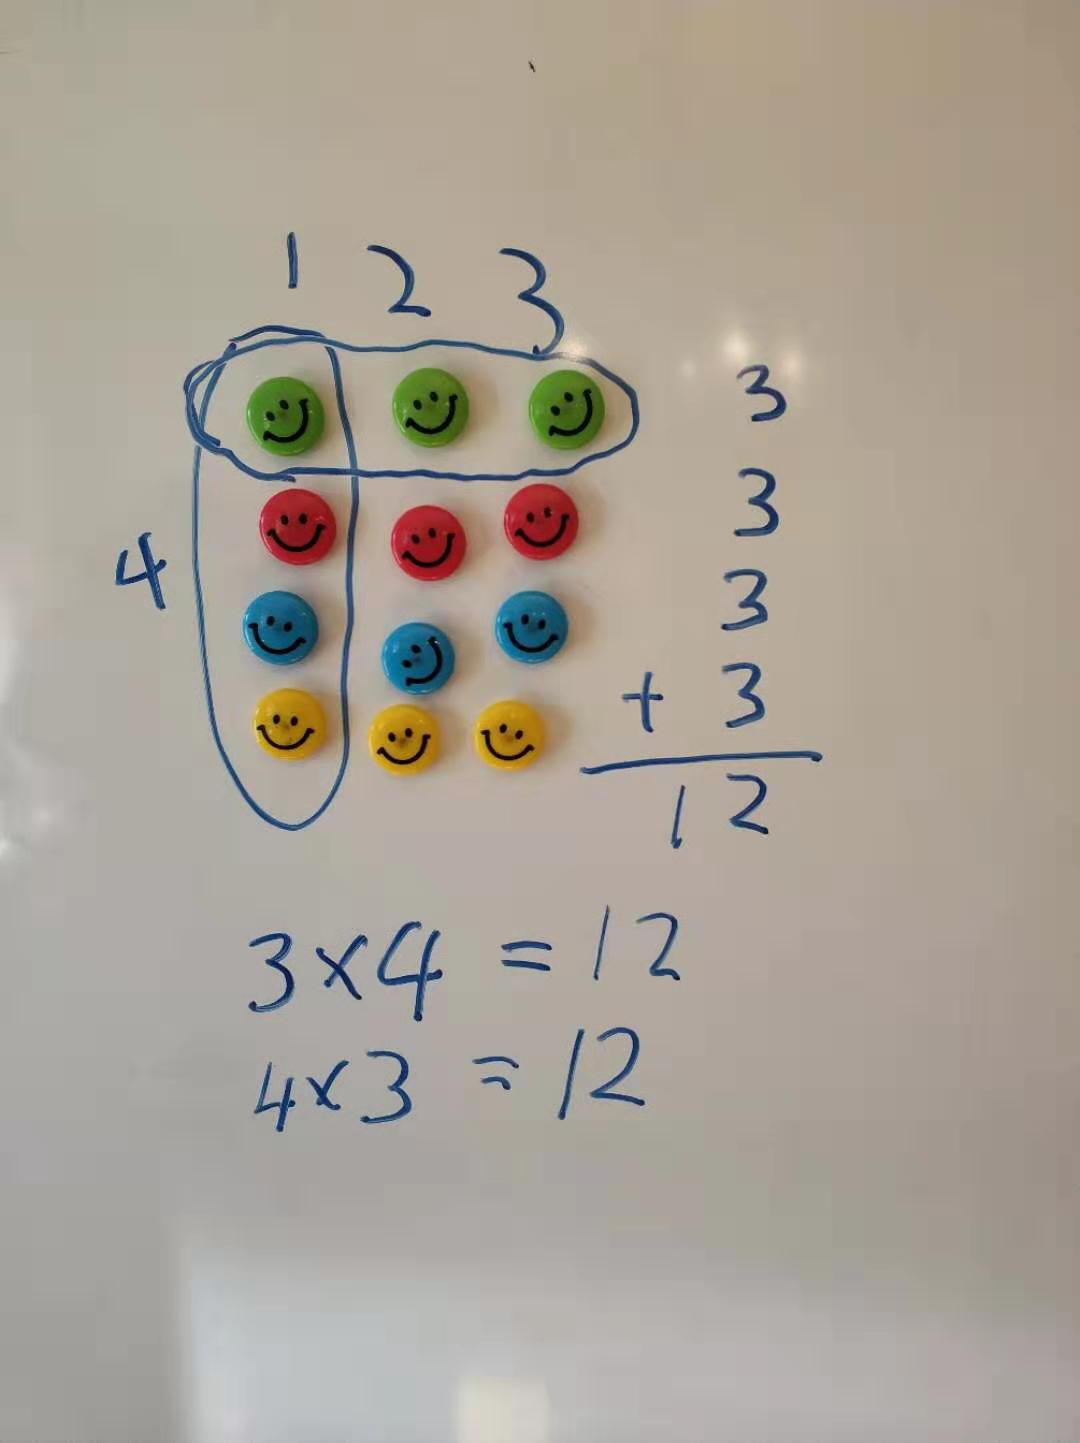 1 2 3
3
3
4
3
+ 3
12
3×4 = 12
4×3 = 12